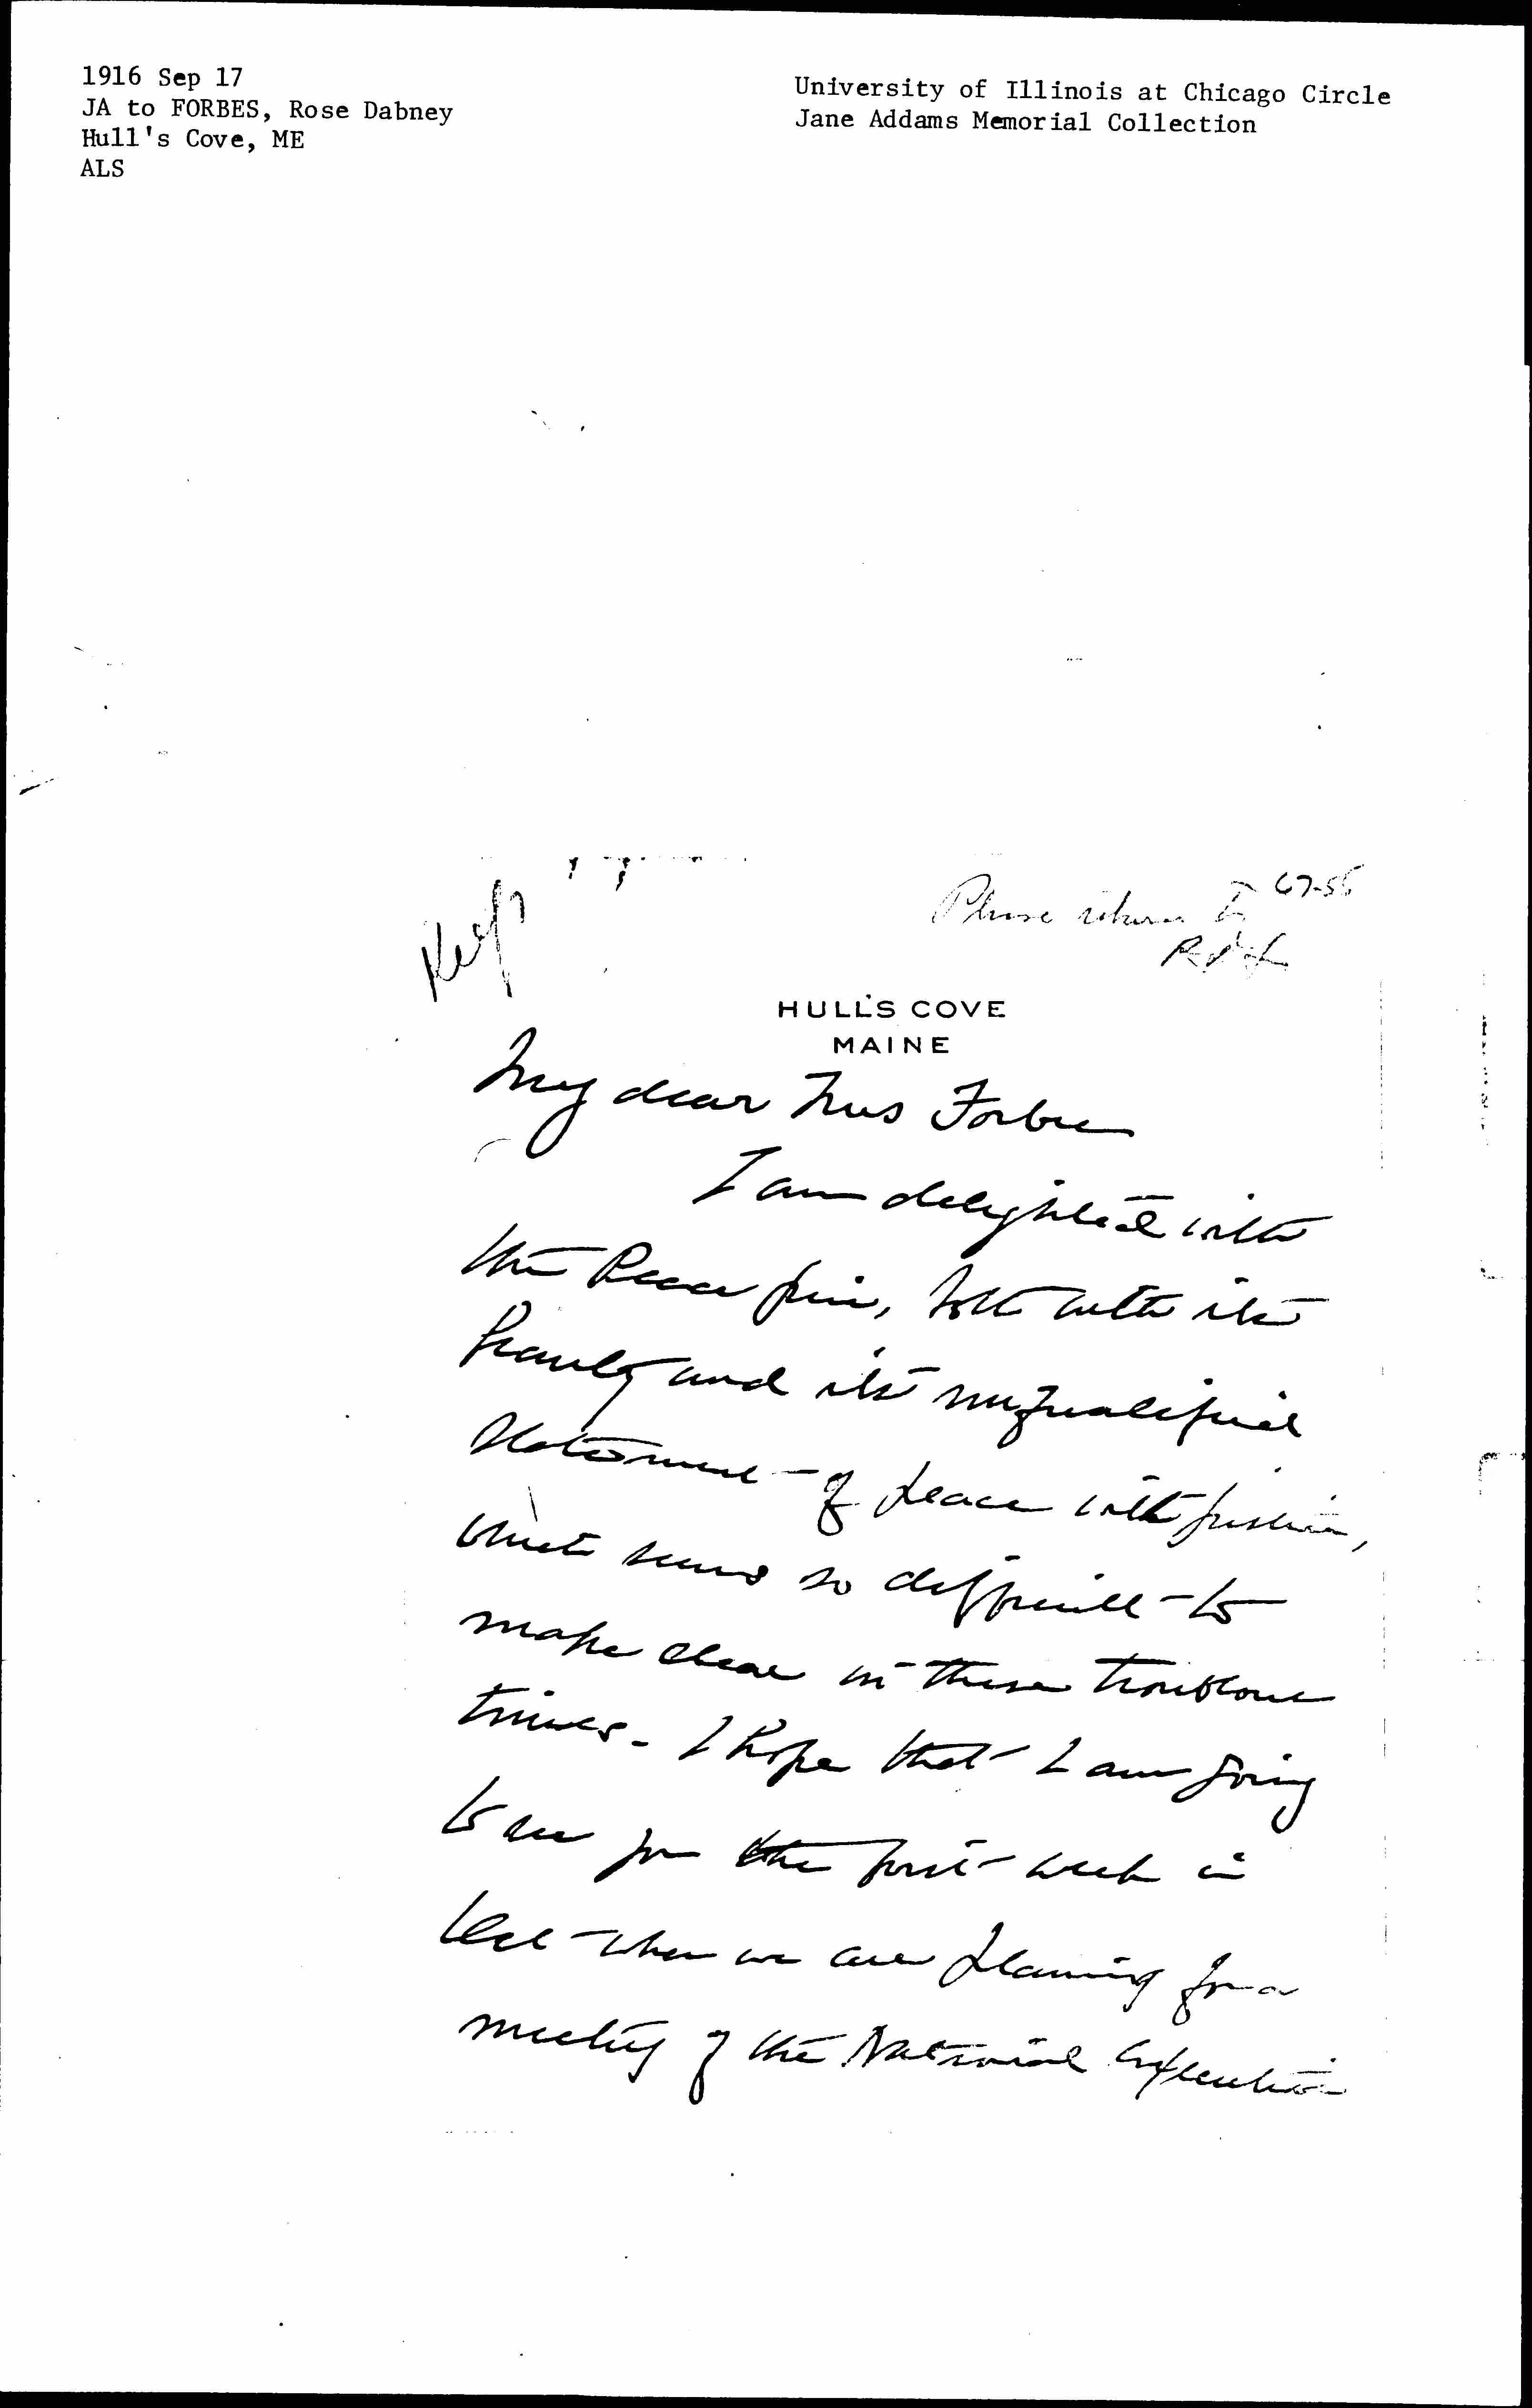 1916 Sep 17
JA to FORBES, Rose Dabney
Hull's Cove, ME
ALS
University of Illinois at Chicago Circle
Jane Addams Memorial Collection
Keep
Please return to 67-55
RDF
HULL'S COVE
MAINE
My dear Mrs Forbes
I am delighted with
the Peace pin, both with its
beauty and its unqualified
statement of peace with justice,
which seems so difficult to
make clear in these troublous
times. I hope that I am going
to see you the first week in
Oct when we are planning for a
meeting of the National Executive